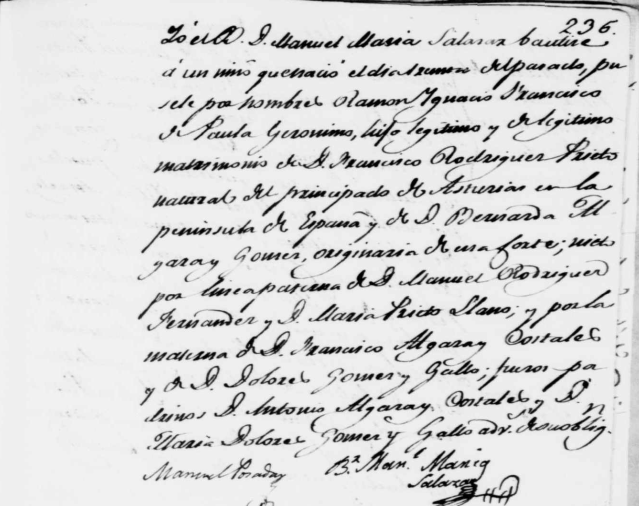 236.
Yo el B. D. Manuel Maria Salazar bautice
á un niño que nació el dia treinta del pasado, pu
sele por nombres Ramon Ygnacio Francisco
de Paula Geronimo, hijo legitimo y de legitimo
matrimonio de D. Francisco Rodriguez Prieto
natural del principado de Asturias en la
peninsula de España y de D. Bernarda Al
garay Gomez, originaria de esta Corte; nieto
por linea paterna de D. Manuel Rodriguez
Fernandez y D. Maria Prieto Llano; y por la
materna de D. Francisco Algaray Costales
y de D. Dolores Gomez y Gallo; fueron pa
drinos D. Antonio Algaray Costales y D.
Maria Dolores Gomez y Gallo adv. su oblig.n
Manuel Posada B.r Man.l Maria
Salazar